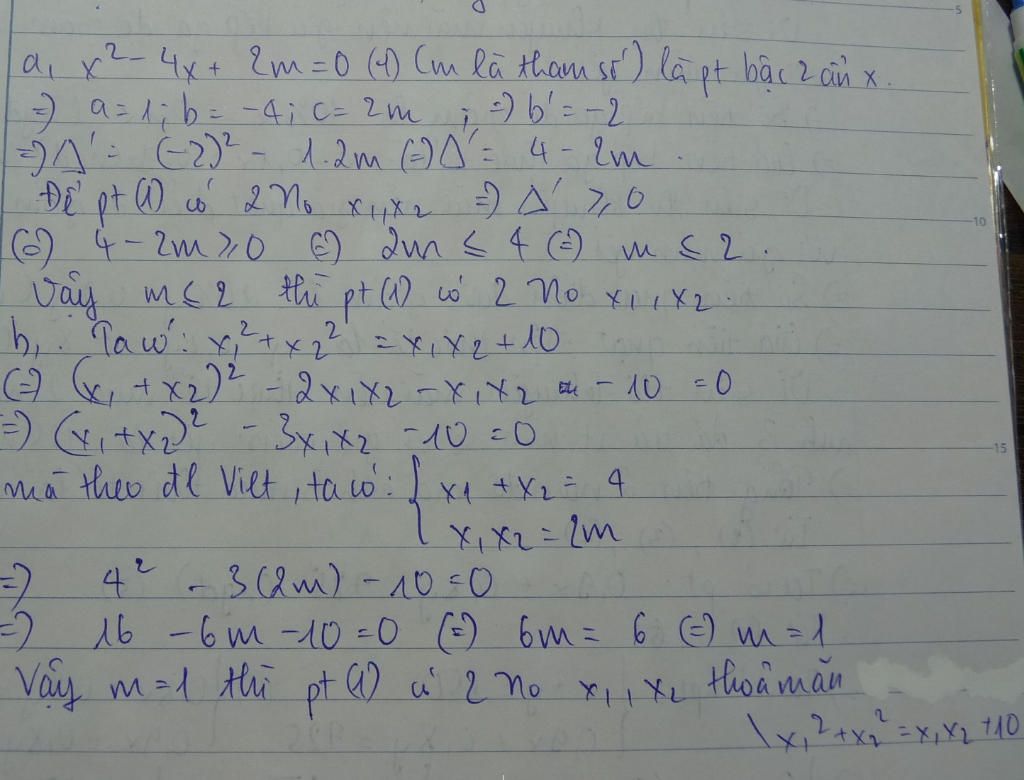 5
a, x² - 4x + 2m = 0 (1) (m là tham số) là pt bậc 2 ẩn x.
=> a = 1; b = -4; c = 2m ; => b' = -2
=> Δ' = (-2)² - 1.2m (=) Δ' = 4 - 2m .
Để pt (1) có 2 no x₁, x₂ => Δ' ⩾ 0
10
(=) 4 - 2m ⩾ 0 (=) 2m ⩽ 4 (=) m ⩽ 2 .
Vậy m ⩽ 2 thì pt (1) có 2 no x₁, x₂ .
b, . Ta có: x₁² + x₂² = x₁x₂ + 10
(=) (x₁ + x₂)² - 2x₁x₂ - x₁x₂ - 10 = 0
=> (x₁ + x₂)² - 3x₁x₂ - 10 = 0
15
mà theo đl Viet, ta có: { x1 + x₂ = 4
x₁x₂ = 2m
=> 4² - 3(2m) - 10 = 0
=> 16 - 6m - 10 = 0 (=) 6m = 6 (=) m = 1
Vậy m = 1 thì pt (1) có 2 no x₁, x₂ thoả mãn
\ x₁² + x₂² = x₁x₂ + 10